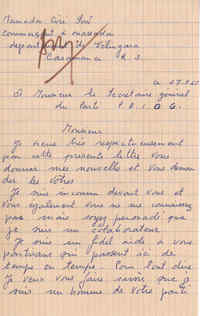 Mamadou Ciré
commerçant à
depart de Velingara
Casamance R.S
à Monsieur le Secretaire général
du Parti P.A.I.G.C.
Monsieur
Je viens très respectueusement
par cette presente lettre vous
donner mes nouvelles et vous deman
der les vôtres
Je suis inconnu devant vous et
vous également vous ne me connaissez
pas mais soyez persuadé que
je suis un collaborateur
Je suis un fidel aide à vos
partisans qui passent ici de
temps en temps. Pour tout dire
Je veux vous faire savoir que je
suis un homme de votre parti